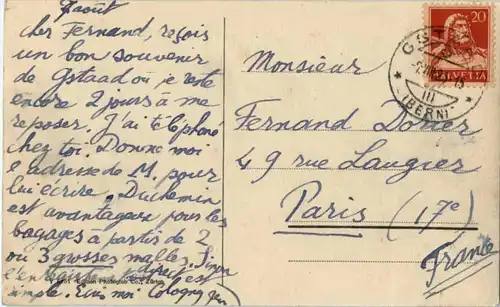 7 août
cher Fernand, reçois
un bon souvenir
de Gstaad où je reste
encore 2 jours à me
reposer. J'ai téléphoné
chez toi. Donne moi
l'adresse de M. pour
lui écrire. Duchemin
est avantageux pour les
bagages à partir de 2
ou 3 grosses malles. Sinon
l'enregistrement direct est
simple. Ecris moi Cologny
Monsieur
Fernand Dorier
49 rue Laugier
Paris (17e)
France
20
HELVETIA
GSTAAD
(BERN)